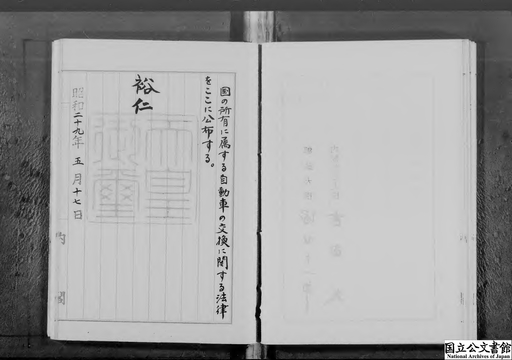 国の所有に属する自動車の交換に関する法律
をここに公布する。
裕仁
天皇
御璽
昭和二十九年五月十七日
内閣
国立公文書館
National Archives of Japan